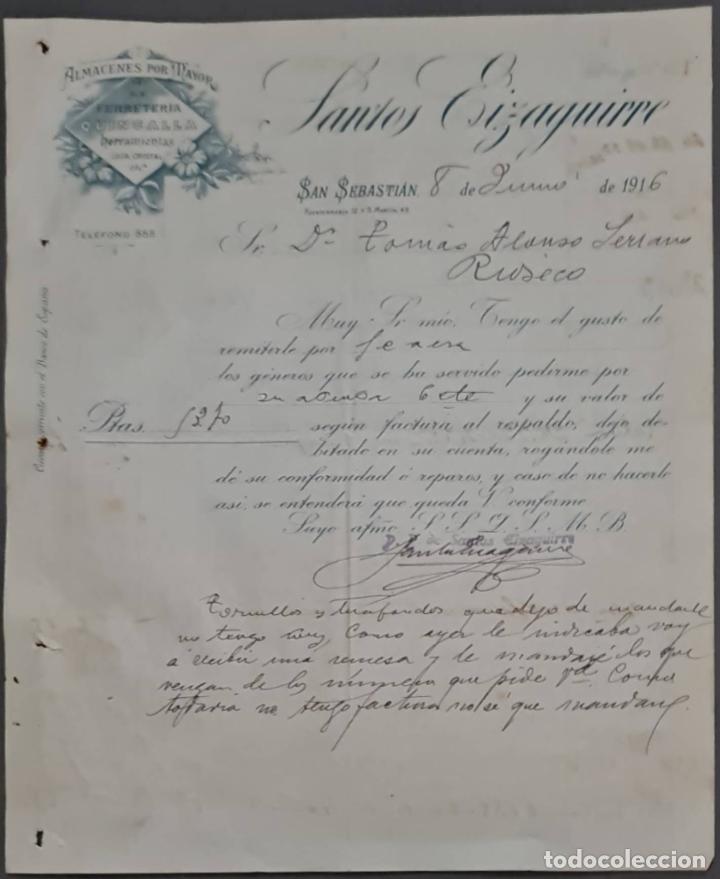 ALMACENES POR MAYOR
DE
FERRETERIA
QUINCALLA
Herramientas
LOZA, CRISTAL
TELEFONO 888
Santos Eizaguirre
SAN SEBASTIÁN, 8 de Junio de 1916
FUENTERRABIA 12 Y S. MARTIN, 45
Sr. Dn. Tomás Alonso Serrano
Rioseco
Cuenta corriente con el Banco de España
Muy Sr. mío: Tengo el gusto de
remitirle por
los géneros que se ha servido pedirme por
su 6 cte y su valor de
Ptas. según factura al respaldo, dejo de-
bitado en su cuenta, rogándole me
dé su conformidad ó reparos, y caso de no hacerlo
así, se entenderá que queda V. conforme
Suyo afmo. S. S. Q. S. M. B.
P. P. de Santos Eizaguirre
Tornillos y tirafondos que dejo de mandarle
no tengo hoy, Como ayer le indicaba voy
á recibir una remesa y le mandaré los que
vengan de los números que pide Vd. Como
todavia no tengo factura no sé que mandan
todocoleccion.net